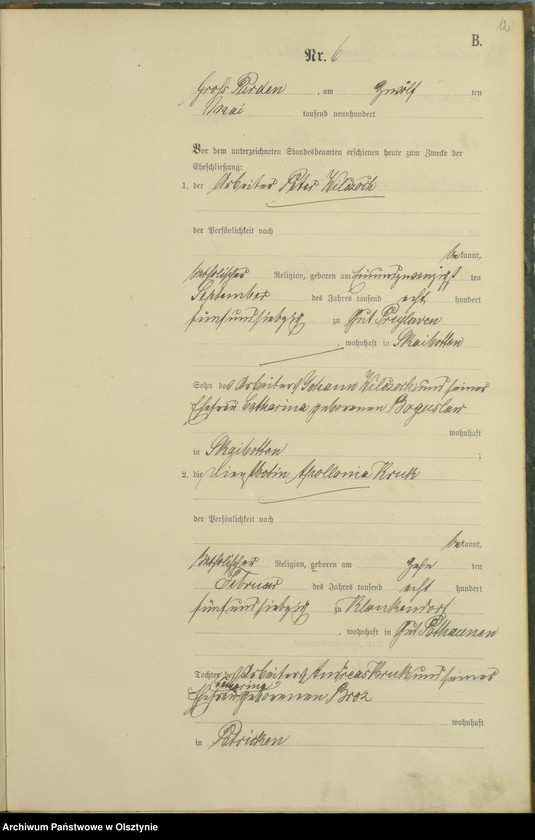 12
B.
Nr. 6
Groß Purden, am Zwölf ten
Mai tausend neunhundert
Vor dem unterzeichneten Standesbeamten erschienen heute zum Zwecke der
Eheschließung:
1. der Arbeiter Peter
der Persönlichkeit nach
bekannt,
katholischer Religion, geboren am einundzwanzigst ten
September des Jahres tausend acht hundert
fünfundsiebzig zu Gut Preylowen
, wohnhaft in Skaibotten
Sohn des Arbeiters Johann und seiner
Ehefrau Catharina geborenen Boguslaw
wohnhaft
in Skaibotten ;
2. die Dienstbotin Apollonia Kruk
der Persönlichkeit nach
bekannt,
katholischer Religion, geboren am zehn ten
Februar des Jahres tausend acht hundert
fünfundsiebzig zu Klaukendorf
, wohnhaft in Gut Pathaunen
Tochter des Arbeiters Andreas Kruk und seiner
Catharina
Ehefrau geborenen Broz
wohnhaft
in Patricken
Archiwum Państwowe w Olsztynie